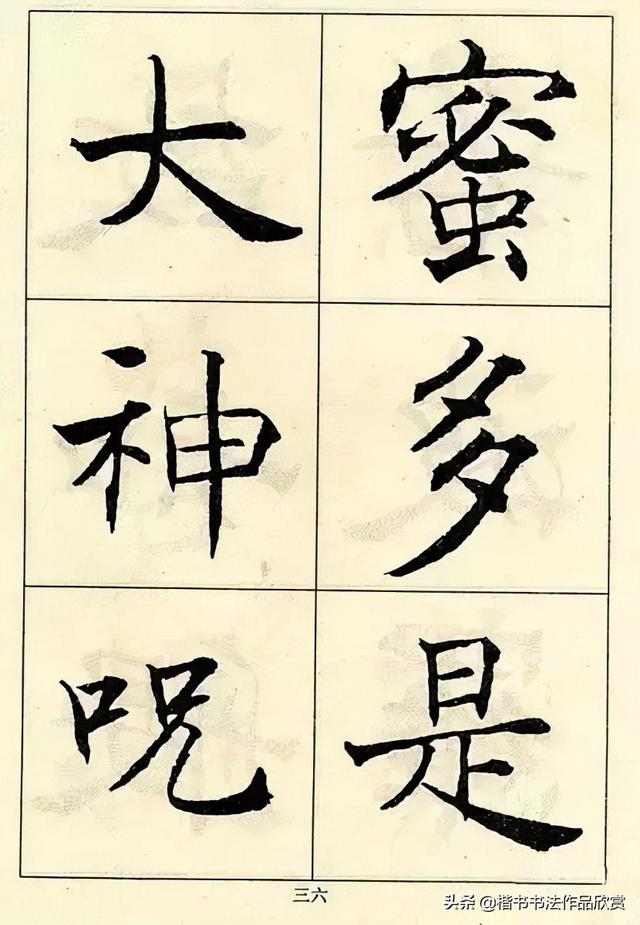 蜜多是
大神呪
三六
头条 @楷书书法作品欣赏